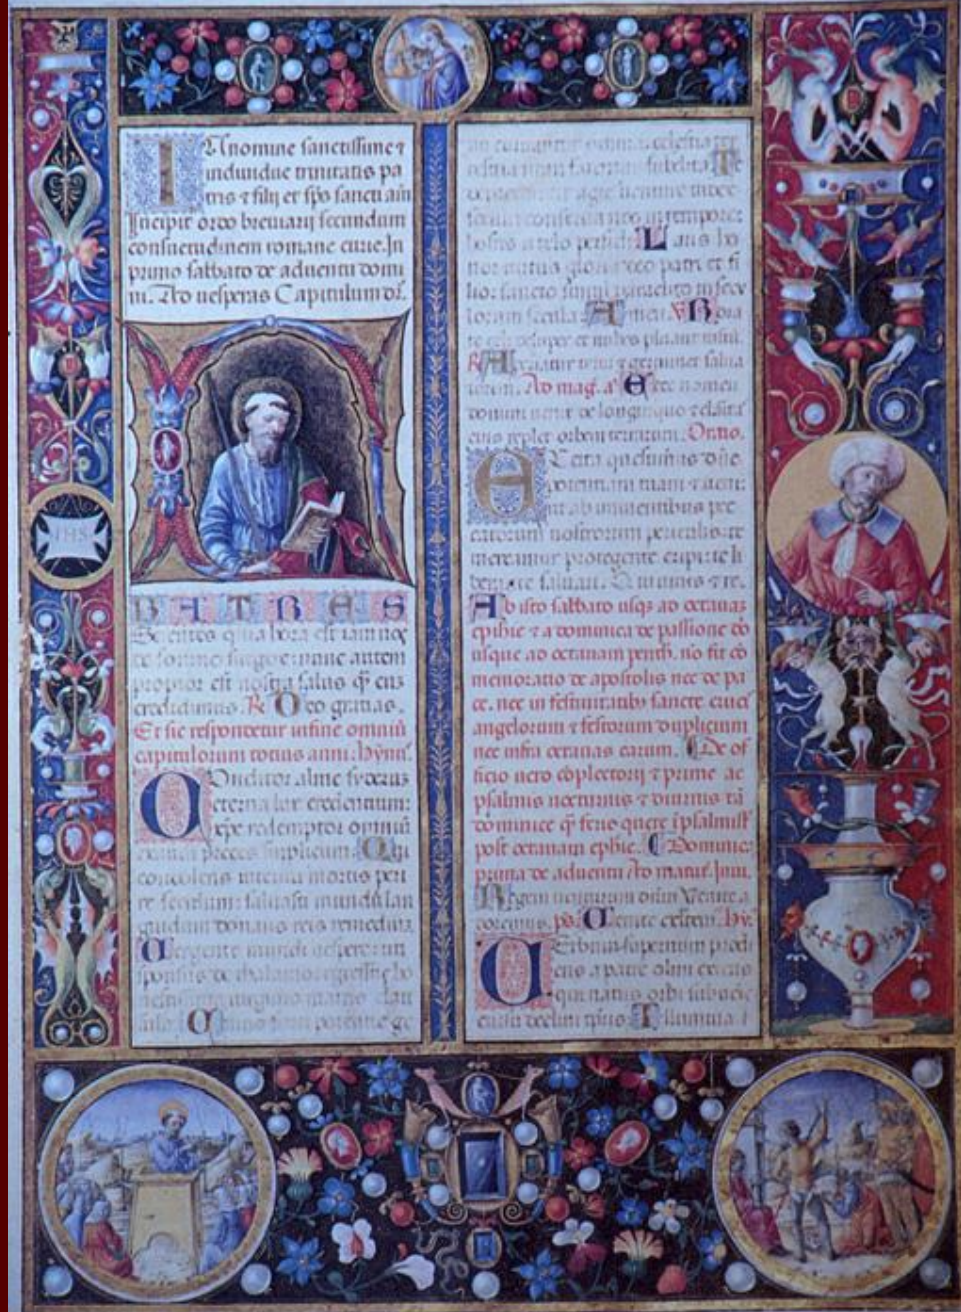 IHS
IN nomine sanctissime ⁊
indiuidue trinitatis pa
tris ⁊ filij et sps sancti am
Incipit ordo breuiarij secundum
consuetudinem romane curie. In
primo sabbato de aduentu domi
ni. Ad uesperas Capitulum
FRATRES
Scientes quia hora est iam nos
de somno surgere: nunc autem
propior est nostra salus q̄
credidimus. R Deo gratias.
Et sic respondetur in fine omniū
capitulorum totius anni. hymꝰ.
COnditor alme syderum
eterna lux credentium:
xp̄e redemptor omniū
exaudi preces supplicum. Qui
condolens interitu mortis peri
re seculum: saluasti mundū lan
guidum donans reis remedium
Uergente mundi uespere: un
sponsus de thalamo: egressus ho
nestissima uirginis matris clau
sula. Cuius forti potentie ge
nu curuantur omnia: celestia
Te
hostis a telo perfidi. Laus ho
nor uirtus gloria deo patri et fi
lio: sancto simul paraclito in secu
lorum secula. Amen. V Rora
te celi desuper et nubes pluant iustū.
R Aperiatur terra ⁊ germinet salua
torem. Ad mag. a Ecce nomen
domini uenit de longinquo ⁊ claritas
eius replet orbem terrarum. Oratio.
EXcita quesumus dn̄e
potentiam tuam ⁊ ueni:
ut ab imminentibus pec
catorum nostrorum periculis: te
mereamur protegente eripi: te li
berante saluari. Qui uiuis ⁊ re.
Ab isto sabbato usqꝫ ad octauas
epihie ⁊ a dominica de passione
usque ad octauam penth. nō fit cō
memoratio de apostolis nec de pa
ce. nec in festiuitatibꝰ sancte crucis
angelorum ⁊ festorum duplicium
nec infra octauas earum. De of
ficio uero cōplectorij ⁊ prime ac
psalmis nocturnis ⁊ diurnis tā
dominice q̄ ferie quere ī psalmist
post octauam ephie. Dominica
prima de aduentu Ad matut. Inui.
Regem uenturum dnm Uenite a
doremus. ps. Uenite
UErbum supernum prodi
ens a patre olim exiens
qui natus orbi subuenis
cursu decliui tpis. Illumina